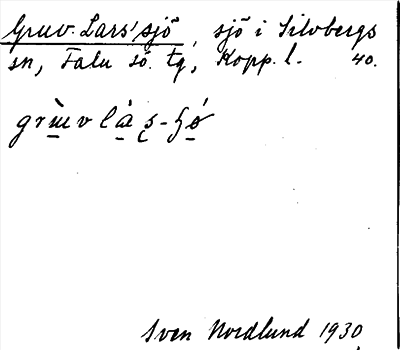 Gruv-Lars' sjö, sjö i Silvbergs
sn, Falu sö. tg, Kopp. l. 40.
Sven Nordlund 1930